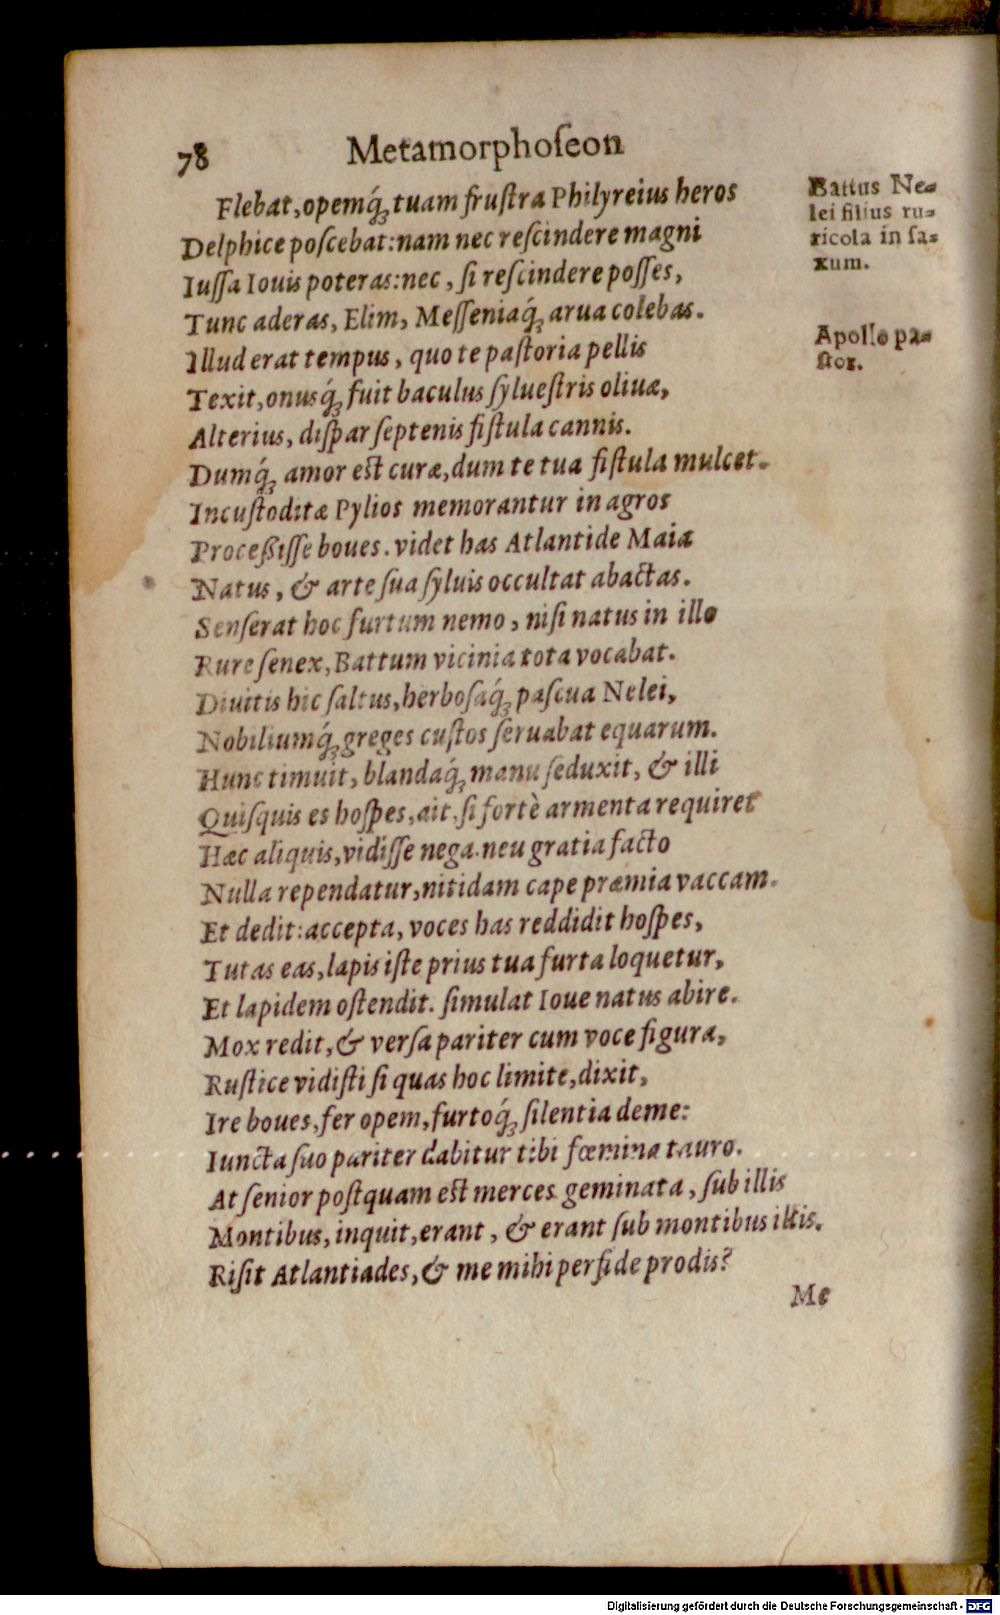 78 Metamorphoſeon
Flebat, opemq́; tuam fruſtra Philyreius heros
Delphice poſcebat: nam nec reſcindere magni
Iuſſa Iouis poteras: nec, ſi reſcindere poſſes,
Tunc aderas, Elim, Meſſeniaq́; arua colebas.
Illud erat tempus, quo te paſtoria pellis
Texit, onusq́; fuit baculus ſylueſtris oliuæ,
Alterius, diſpar ſeptenis fiſtula cannis.
Dumq́; amor eſt curæ, dum te tua fiſtula mulcet.
Incuſtoditæ Pylios memorantur in agros
Proceßiſſe boues. videt has Atlantide Maia
Natus, & arte ſua ſyluis occultat abactas.
Senſerat hoc furtum nemo, niſi natus in illo
Rure ſenex, Battum vicinia tota vocabat.
Diuitis hic ſaltus, herboſaq́; paſcua Nelei,
Nobiliumq́; greges cuſtos ſeruabat equarum.
Hunc timuit, blandaq́; manu ſeduxit, & illi
Quiſquis es hoſpes, ait, ſi fortè armenta requiret
Hæc aliquis, vidiſſe nega. neu gratia facto
Nulla rependatur, nitidam cape præmia vaccam.
Et dedit: accepta, voces has reddidit hoſpes,
Tutas eas, lapis iſte prius tua furta loquetur,
Et lapidem oſtendit. ſimulat Ioue natus abire.
Mox redit, & verſa pariter cum voce figura,
Ruſtice vidiſti ſi quas hoc limite, dixit,
Ire boues, fer opem, furtoq́; ſilentia deme:
Iuncta ſuo pariter dabitur tibi fœmina tauro.
At ſenior poſtquam eſt merces geminata, ſub illis
Montibus, inquit, erant, & erant ſub montibus illis.
Riſit Atlantiades, & me mihi perfide prodis?
Me
Battus Ne-
lei filius ru-
ricola in ſa-
xum.
Apollo pa-
ſtor.
Digitalisierung gefördert durch die Deutsche Forschungsgemeinschaft - DFG